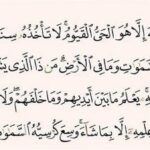 إِلَّا هُوَ الْحَيُّ الْقَيُّومُ لَا تَأْخُذُهُ سِنَ
السَّمَٰوَٰتِ وَمَا فِي الْأَرْضِ مَن ذَا الَّذِي يَشْ
يَعْلَمُ مَا بَيْنَ أَيْدِيهِمْ وَمَا خَلْفَهُمْ وَلَا
عِلْمِهِ إِلَّا بِمَا شَاءَ وَسِعَ كُرْسِيُّهُ السَّمَٰو